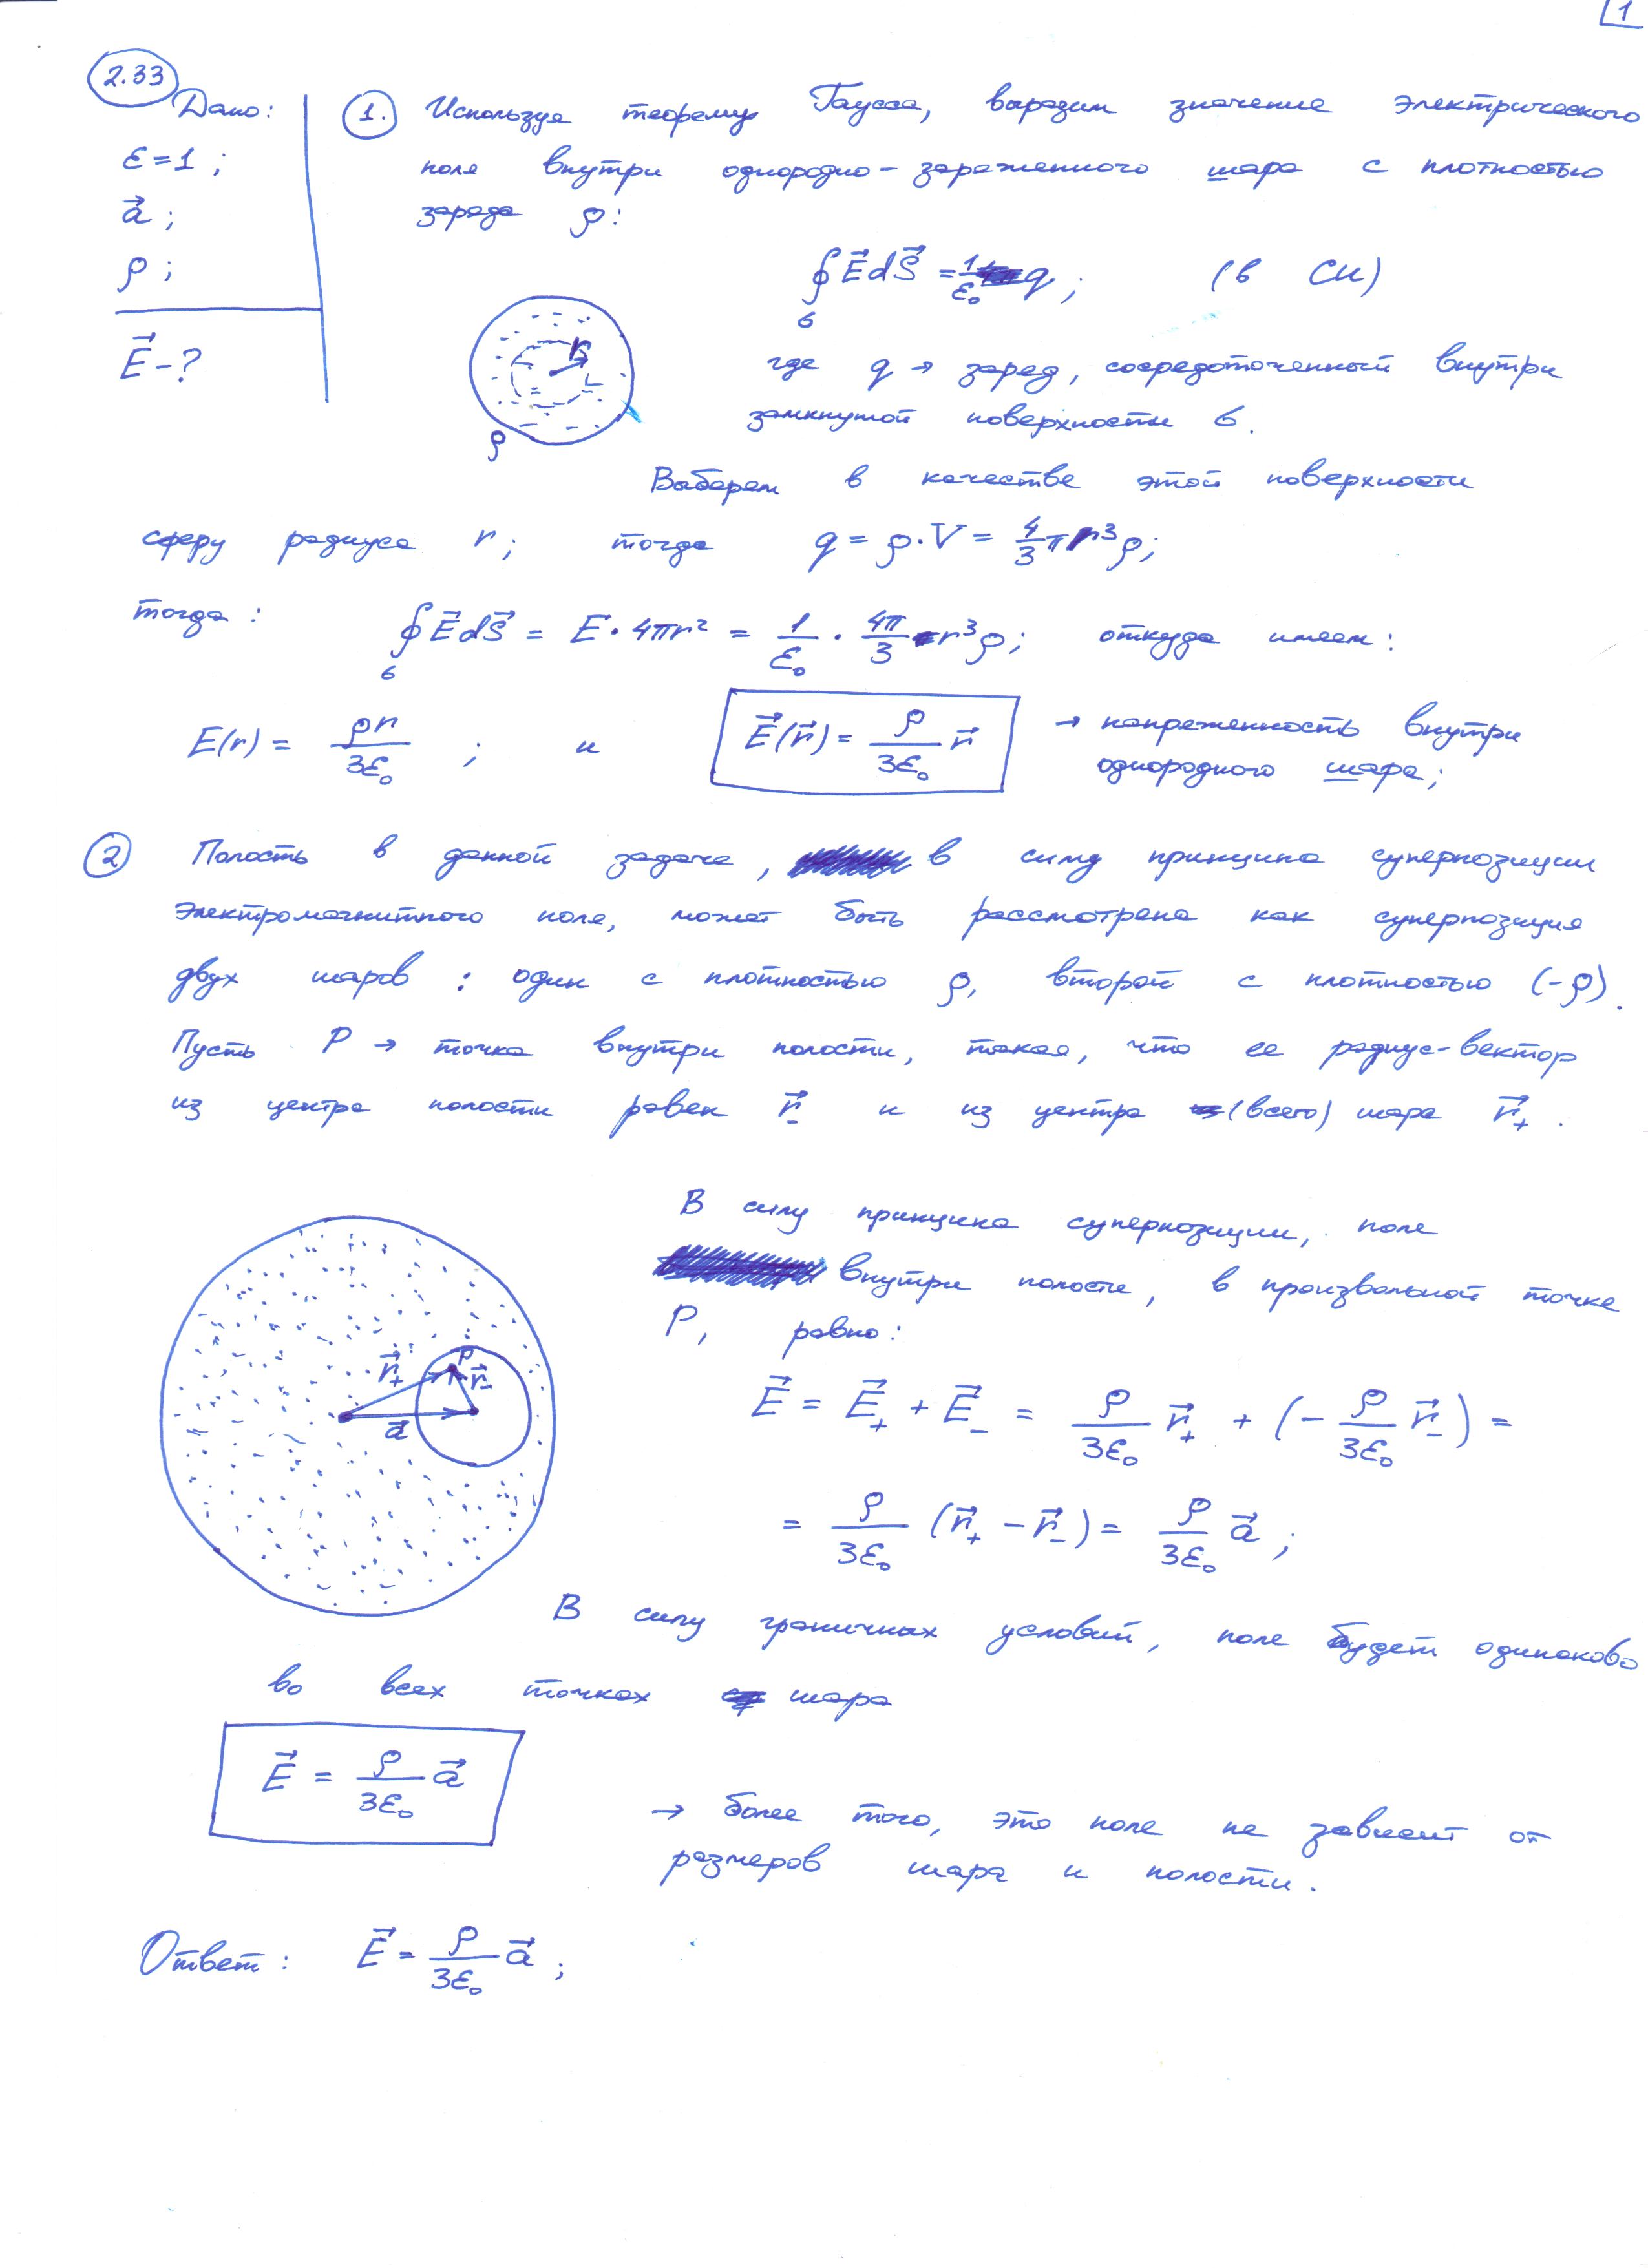 1
2.33
Дано:
ε=1;
a⃗;
ρ;
E⃗ -?
1. Используя теорему Гаусса, выразим значение электрического
поля внутри однородно-заряженного шара с плотностью
заряда ρ:
∮ E⃗dS⃗ = 1/ε₀ q; (в СИ)
σ
r⃗
ρ
где q → заряд, сосредоточенный внутри
замкнутой поверхности σ.
Выберем в качестве этой поверхности
сферу радиуса r; тогда q = ρ·V = 4/3 πr³ρ;
тогда: ∮ E⃗dS⃗ = E·4πr² = 1/ε₀ · 4π/3 r³ρ; откуда имеем:
σ
E(r) = ρr/3ε₀ ; и E⃗(r⃗) = ρ/3ε₀ r⃗ → напряженность внутри
однородного шара;
2 Полость в данной задаче, в силу принципа суперпозиции
электромагнитного поля, может быть рассмотрена как суперпозиция
двух шаров: один с плотностью ρ, второй с плотностью (-ρ).
Пусть P → точка внутри полости, такая, что ее радиус-вектор
из центра полости равен r⃗₋ и из центра (всего) шара r⃗₊.
В силу принципа суперпозиции, поле
внутри полости, в произвольной точке
P, равно:
P
r⃗₊
r⃗₋
a⃗
E⃗ = E⃗₊ + E⃗₋ = ρ/3ε₀ r⃗₊ + (- ρ/3ε₀ r⃗₋) =
= ρ/3ε₀ (r⃗₊ - r⃗₋) = ρ/3ε₀ a⃗;
В силу граничных условий, поле будет одинаково
во всех точках шара
E⃗ = ρ/3ε₀ a⃗
→ более того, это поле не зависит от
размеров шара и полости.
Ответ: E⃗ = ρ/3ε₀ a⃗;